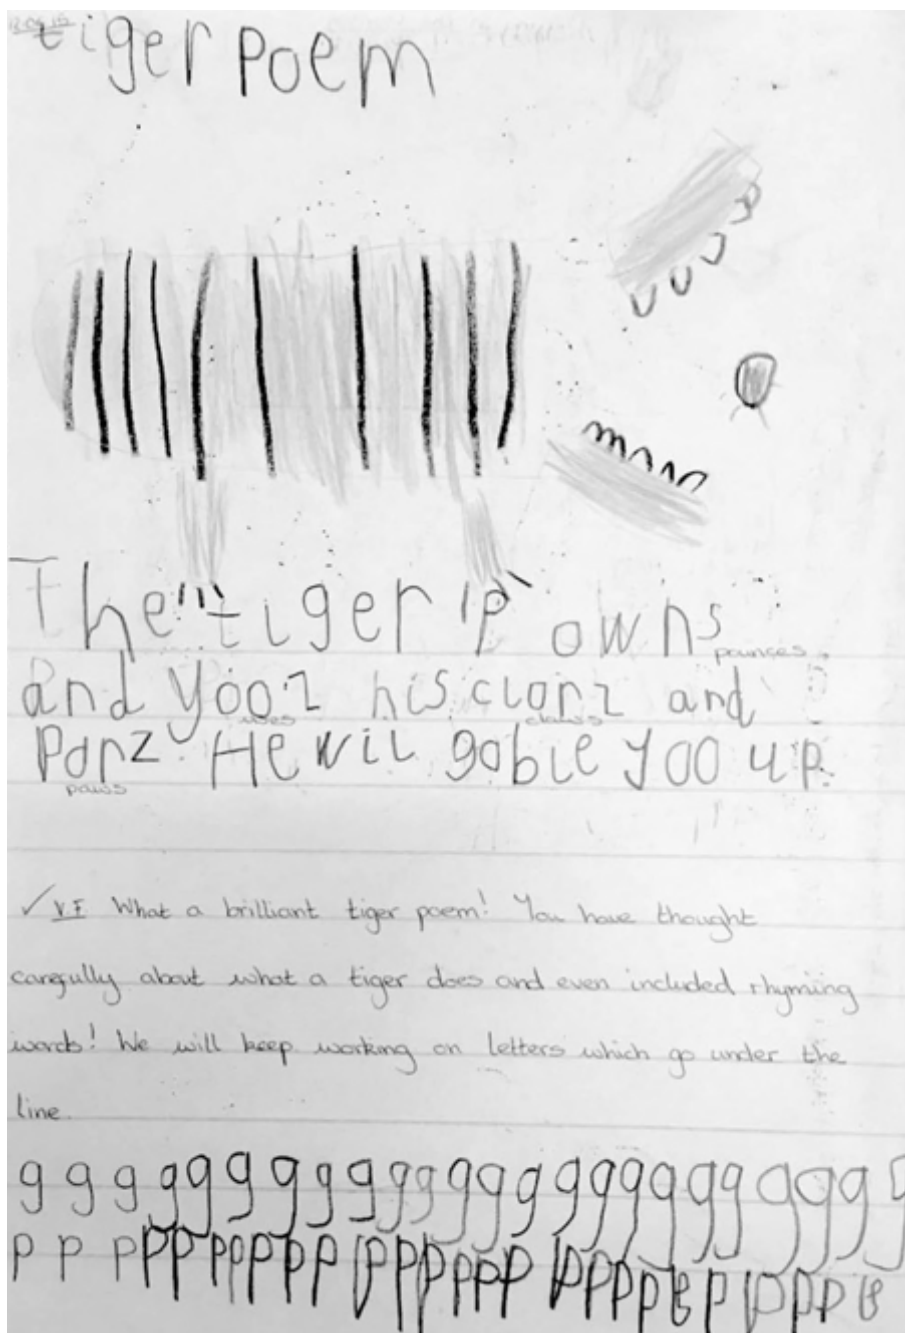 tiger poem
The tiger p owns
pounces
and yooz his clorz and
uses claws
porz. He wil goble yoo up.
paws
✓ V.F. What a brilliant tiger poem! You have thought
carefully about what a tiger does and even included rhyming
words! We will keep working on letters which go under the
line.
g g g g g g g g g g g g g g g g g g g g g g g g g g
p p p p p p p p p p p p p p p p p p p p p p p p p p p